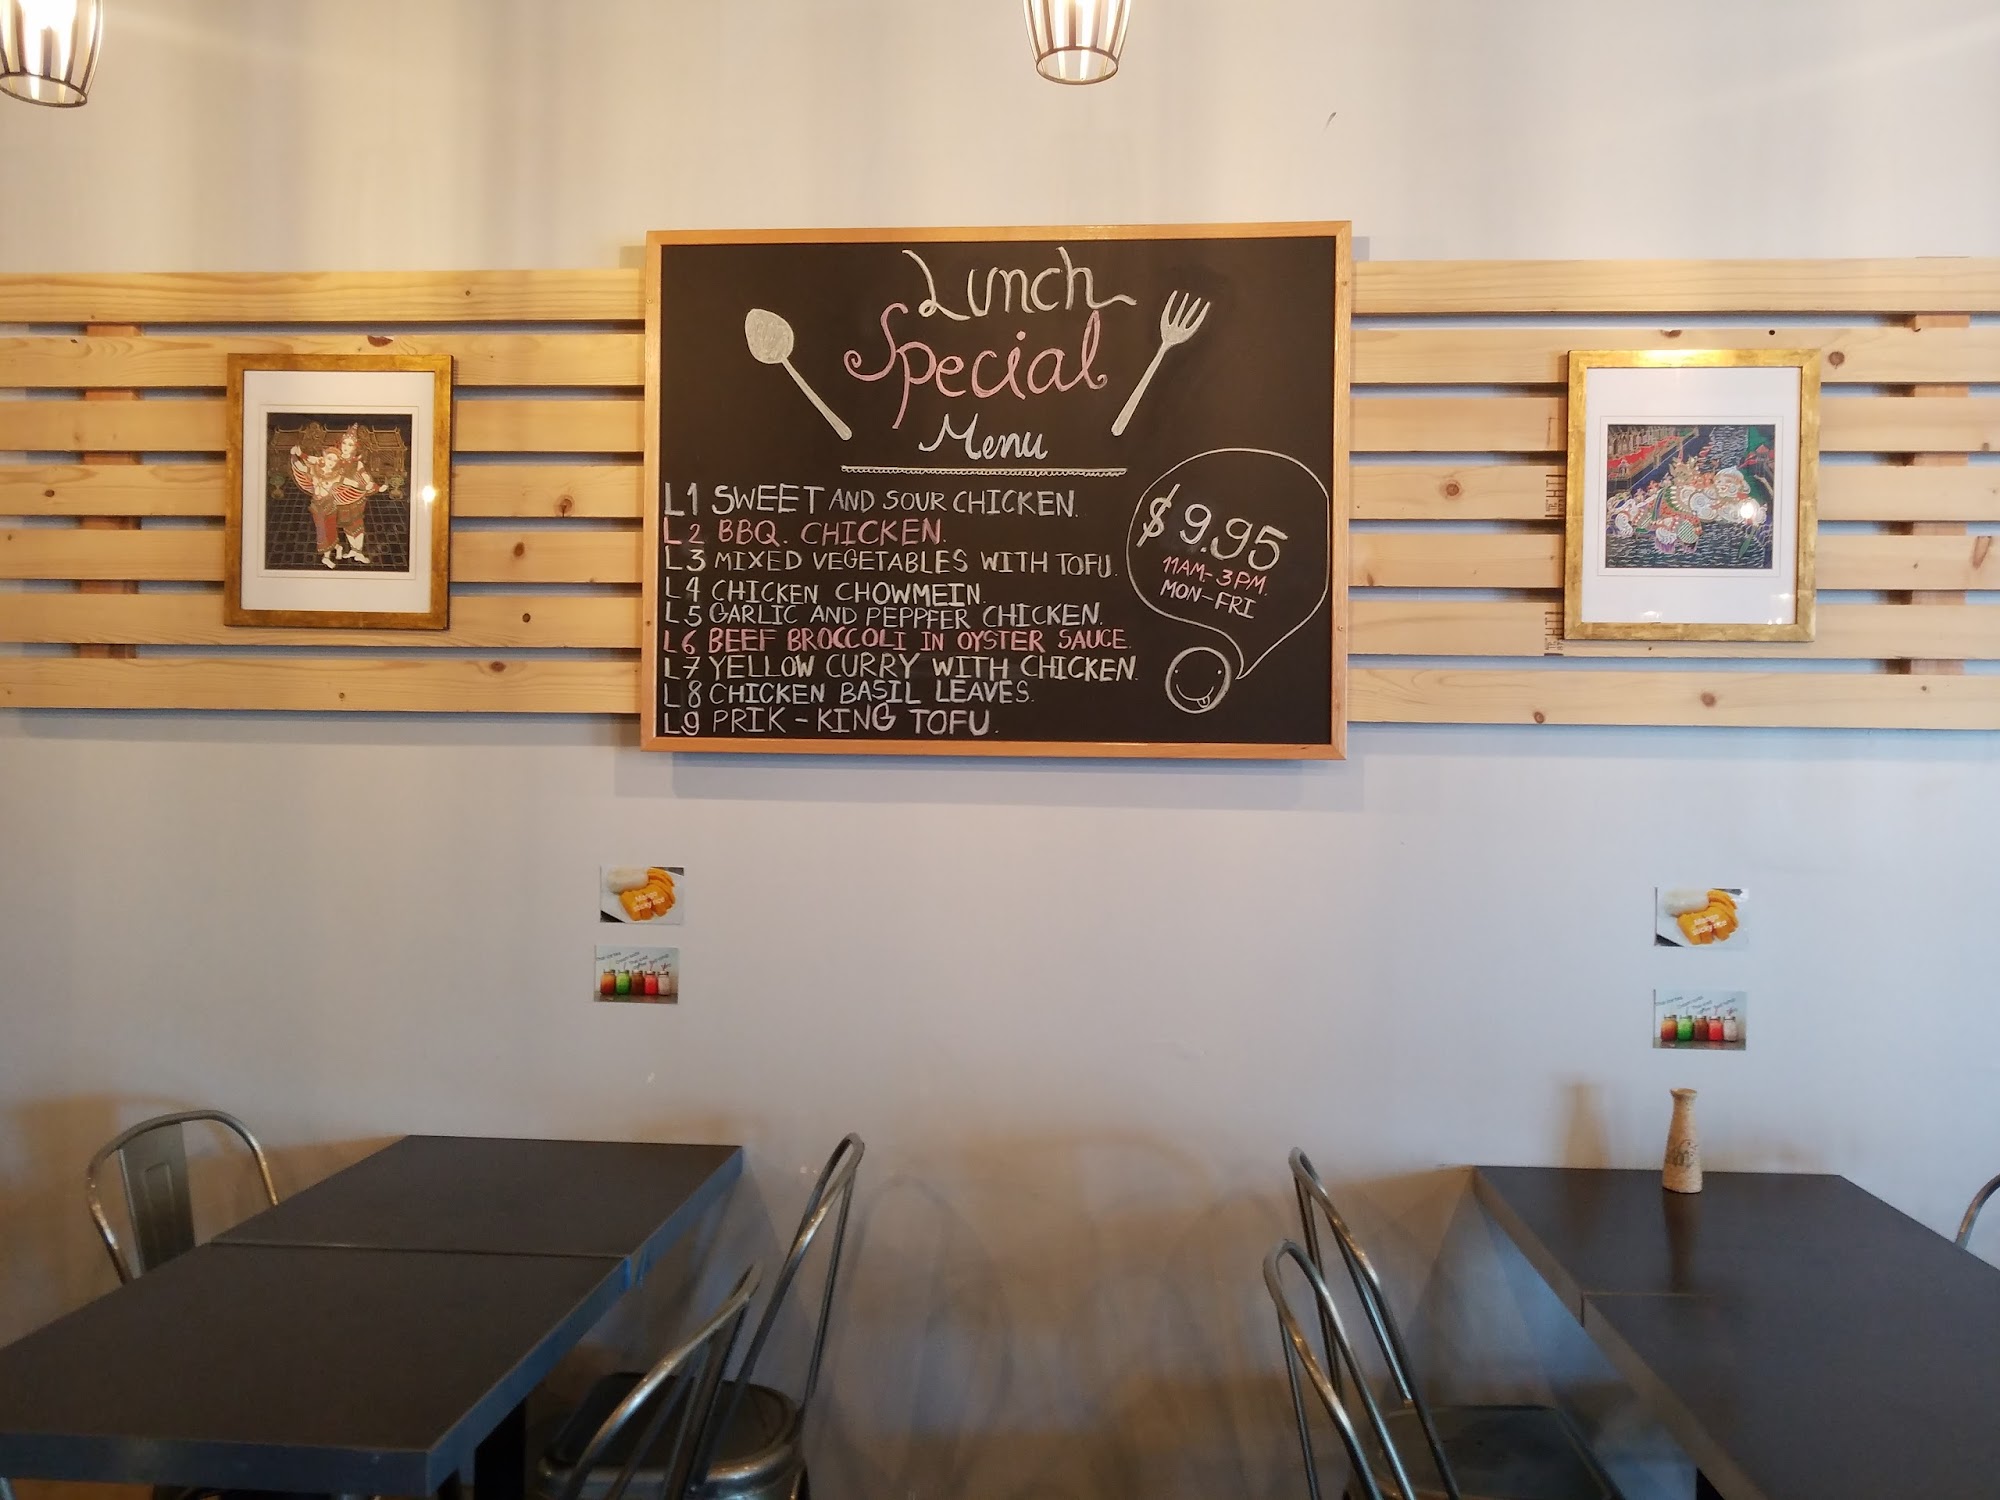 Lunch
Special
Menu
L1 SWEET AND SOUR CHICKEN.
L2 BBQ. CHICKEN.
L3 MIXED VEGETABLES WITH TOFU.
L4 CHICKEN CHOWMEIN.
L5 GARLIC AND PEPPFER CHICKEN.
L6 BEEF BROCCOLI IN OYSTER SAUCE.
L7 YELLOW CURRY WITH CHICKEN.
L8 CHICKEN BASIL LEAVES.
L9 PRIK-KING TOFU.
$9.95
11AM-3PM.
MON-FRI
Mango
sticky rice
Mango
sticky rice